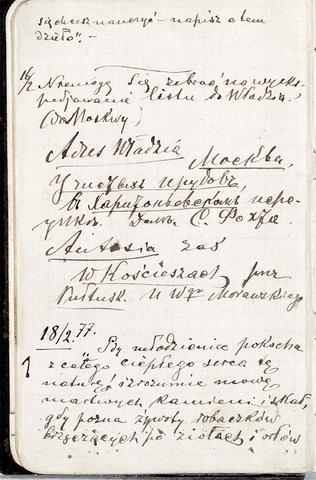 się chcesz nauczyć – napisz o tem
dzieło". –
16/2 Nie mogę się zebrać na wyeks-
pedjowanie listu do Władzia.
(do Moskwy)
Adres Władzia
Москва,
У чистыхъ прудовъ,
въ Харитоньевскомъ пере-
улкѣ. Домъ. С. Фохта.
Antosia zaś
w Kościeszach, przez
Pułtusk. u Wgo Morawskiego
18/2.77.
Gdy młodzieniec pokocha
z całego ciepłego serca tę
naturę, i zrozumie mowę
martwych kamieni i skał,
gdy pozna żywoty robaczków
brzęczących po ziołach i orłów